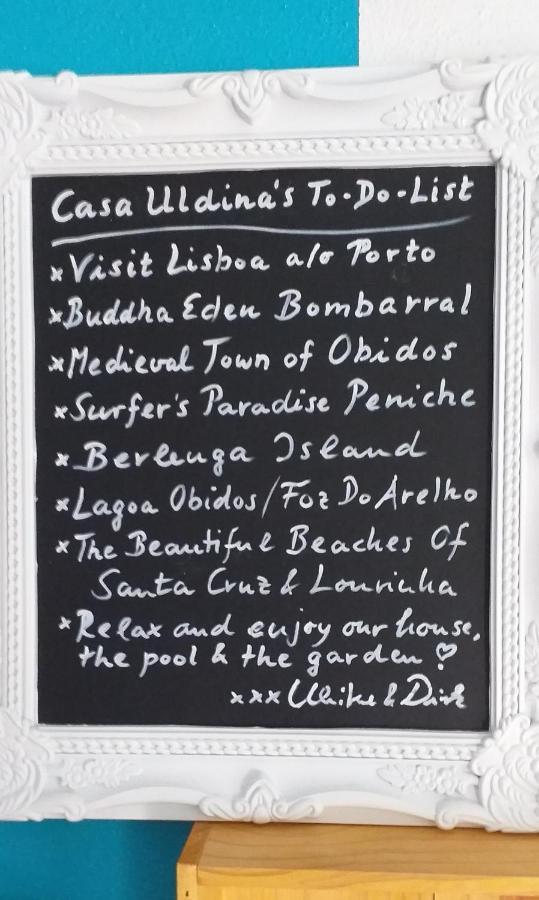 Casa Uldina's To-Do-List
x Visit Lisboa a/o Porto
x Buddha Eden Bombarral
x Medieval Town of Obidos
x Surfer's Paradise Peniche
x Berlenga Island
x Lagoa Obidos/Foz Do Arelho
x The Beautiful Beaches Of
Santa Cruz & Lourinha
x Relax and enjoy our house,
the pool & the garden ♡
xxx Ulrike & Dirk